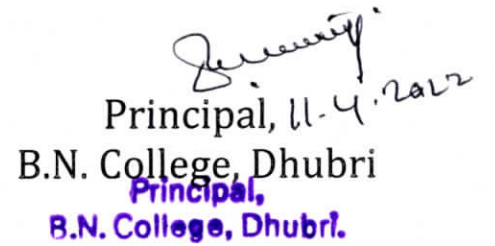 Principal, 11-4-2022
B.N. College, Dhubri
Principal,
B.N. College, Dhubri.